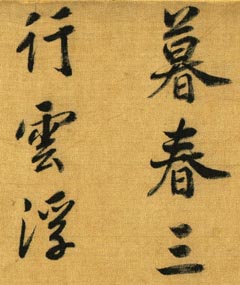 暮春三
行雲浮